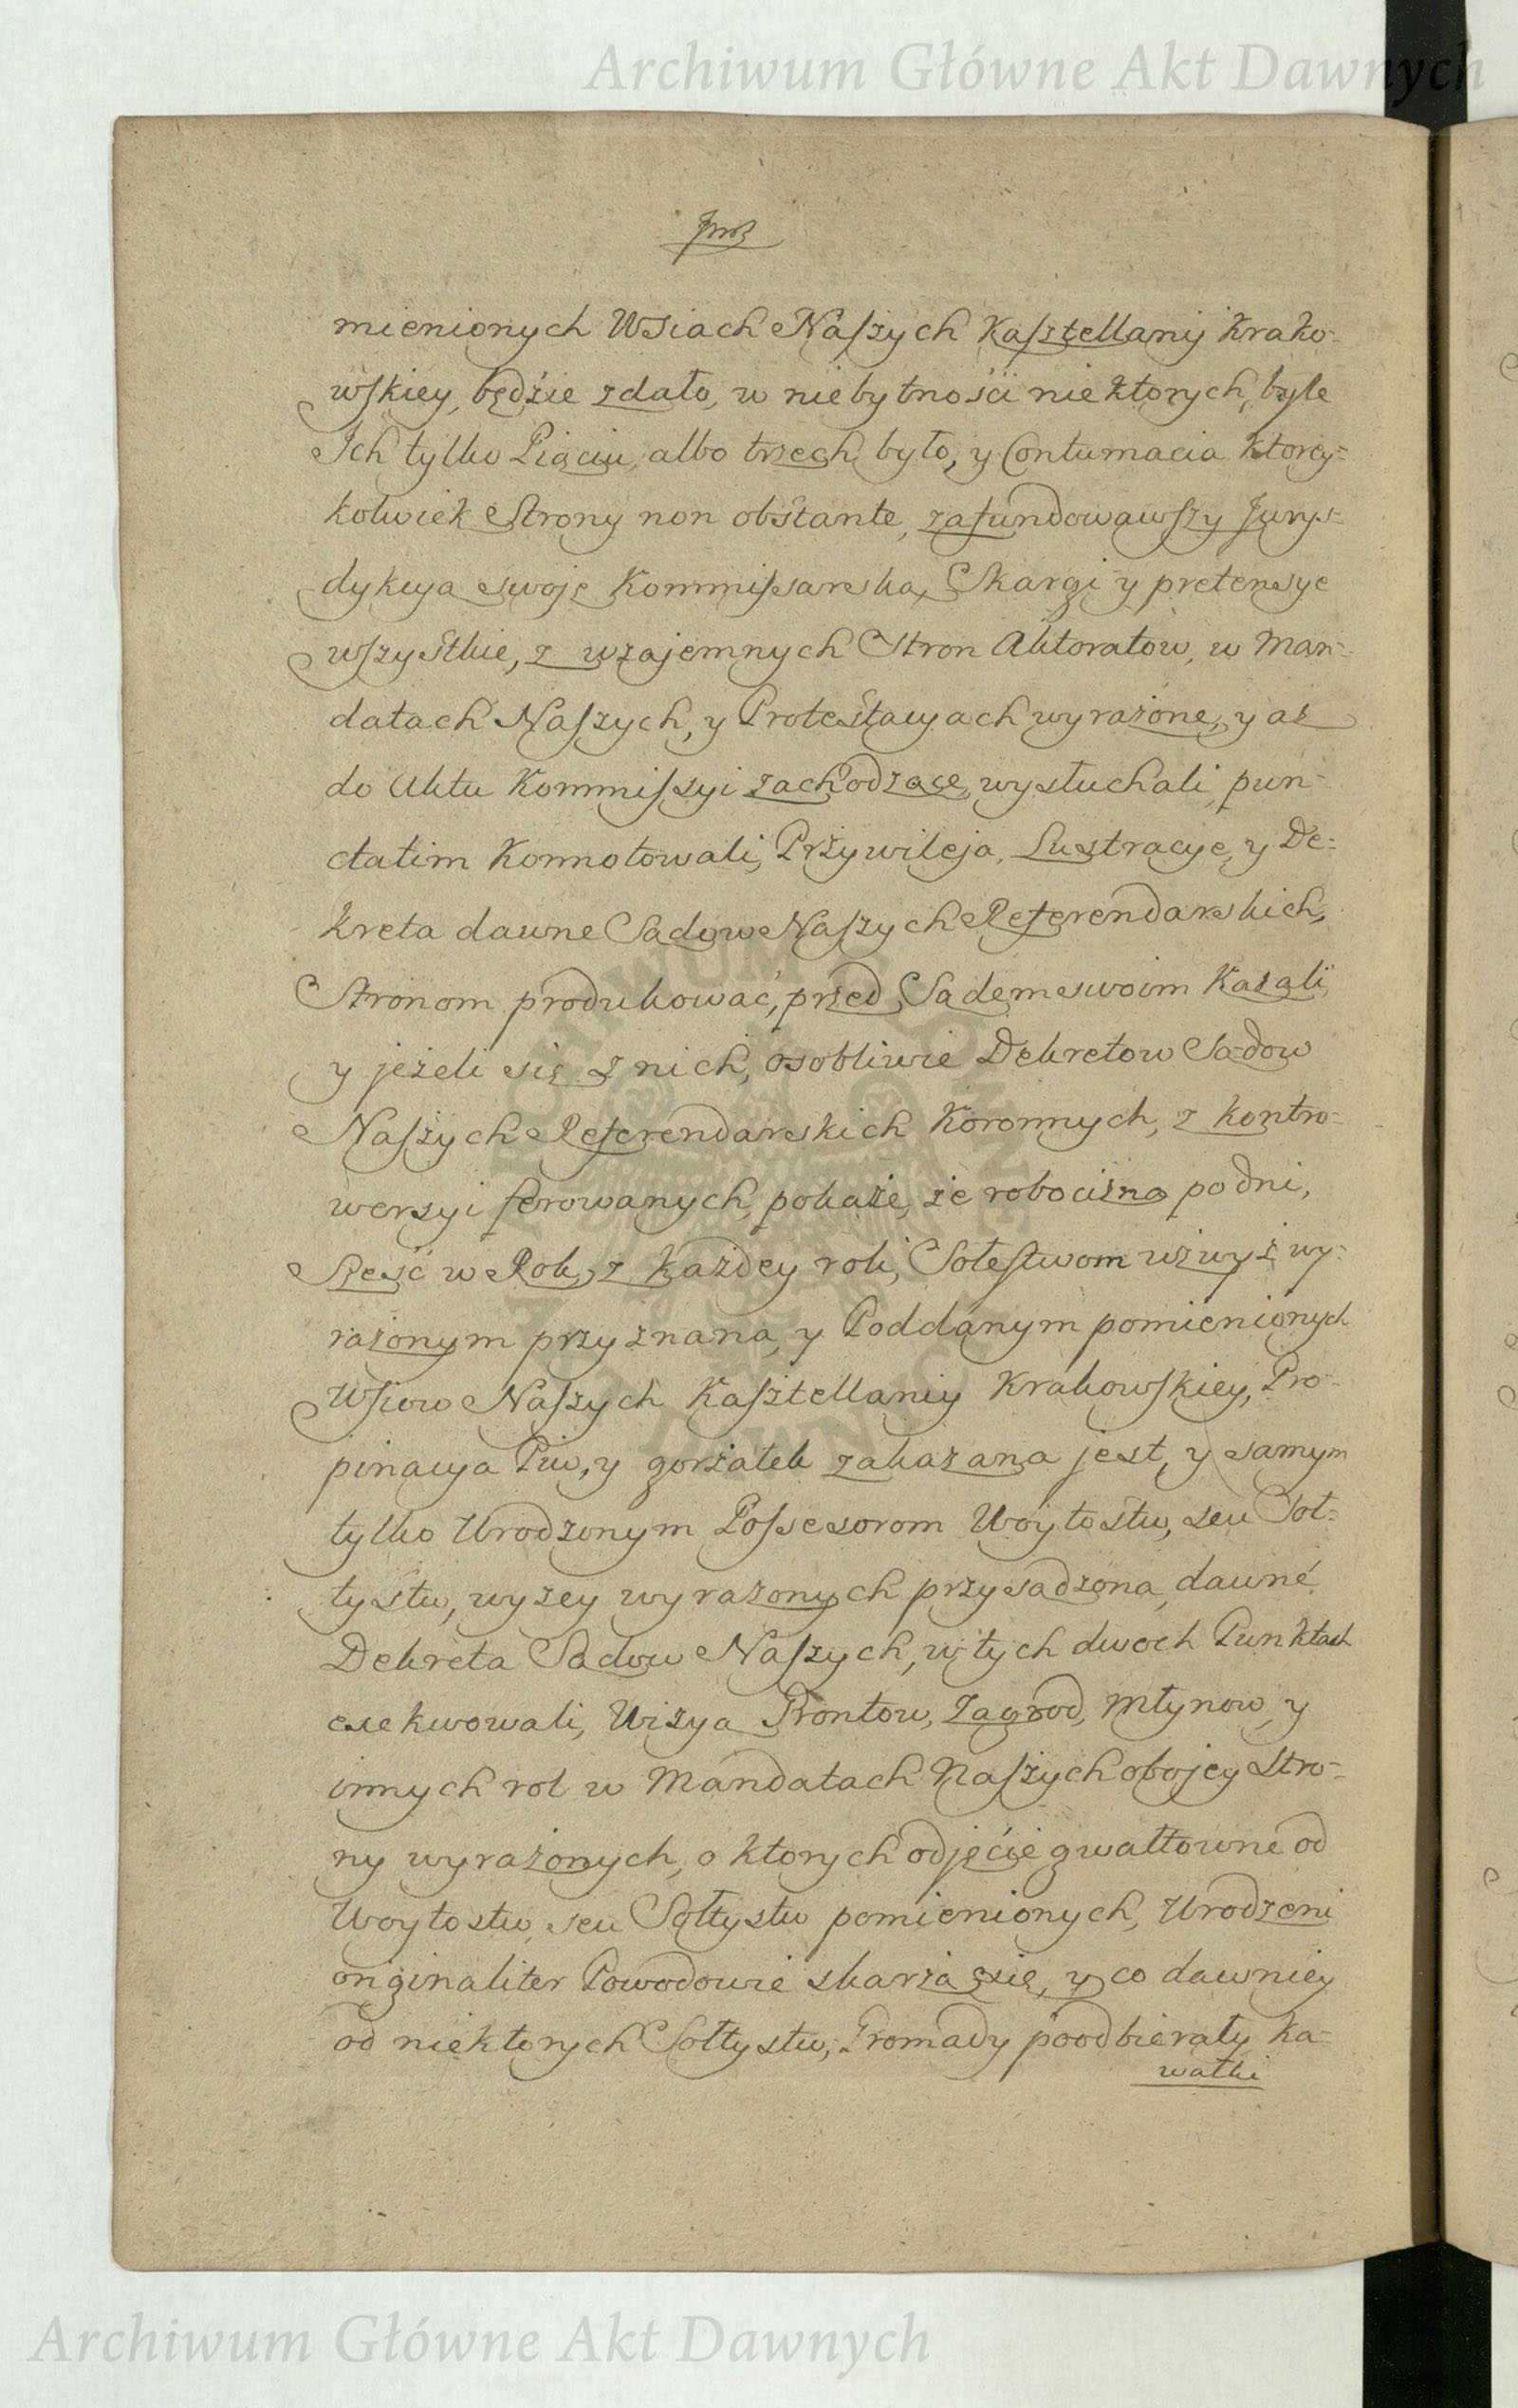 Archiwum Główne Akt Dawnych
mienionych Wsiach Naszych Kasztellanij Krako-
wskiey, będzie zdało, w niebytnośći niektorych, byle
Ich tylko Piąciu, albo trzech było, y Contumacia ktorey-
kolwiek Strony non obstante, zafundowawszy Jurys-
dykcyą swoję Kommissarską, Skargi y pretensye
wszystkie, z wzajemnych Stron Aktoratow, w Man-
datach Naszych, y Protestacyach wyrażone, y aż
do Aktu Kommissyi zachodzące, wysłuchali, pun-
ctatim konnotowali, Przywileja, Lustracye, y De-
kreta dawne Sądow Naszych Referendarskich,
Stronom produkować, przed Sądem swoim kazali,
y jeżeli się z nich, osobliwie Dekretow Sądow
Naszych Referendarskich Koronnych, z kontro-
wersyi ferowanych, pokaże, że robocizna po dni,
sześć w Rok, z każdey roli, Sołestwom wzwyż wy-
rażonym przyznana, y Poddanym pomienionych
Wsiow Naszych Kasztellaniy Krakowskiey, Pro-
pinacya Piw, y gorzałek zakazana jest, y samym
tylko Urodzonym Possesorom Woytostw, seu Soł-
tystw, wyżey wyrażonych przysądzona, dawné
Dekreta Sądow Naszych, w tych dwoch Punktach
exekwowali, Wizyą Grontow, Zagrod, Młynow, y
innych rol w Mandatach Naszych obojey Stro-
ny wyrażonych, o ktorych odjęćie gwałtowne od
Woytostw, seu Sołtystw pomienionych, Urodzeni
originaliter Powodowie skarżą się, y co dawniey
od niektorych Sołtystw, Gromady poodbierały ka-
wałki
Archiwum Główne Akt Dawnych